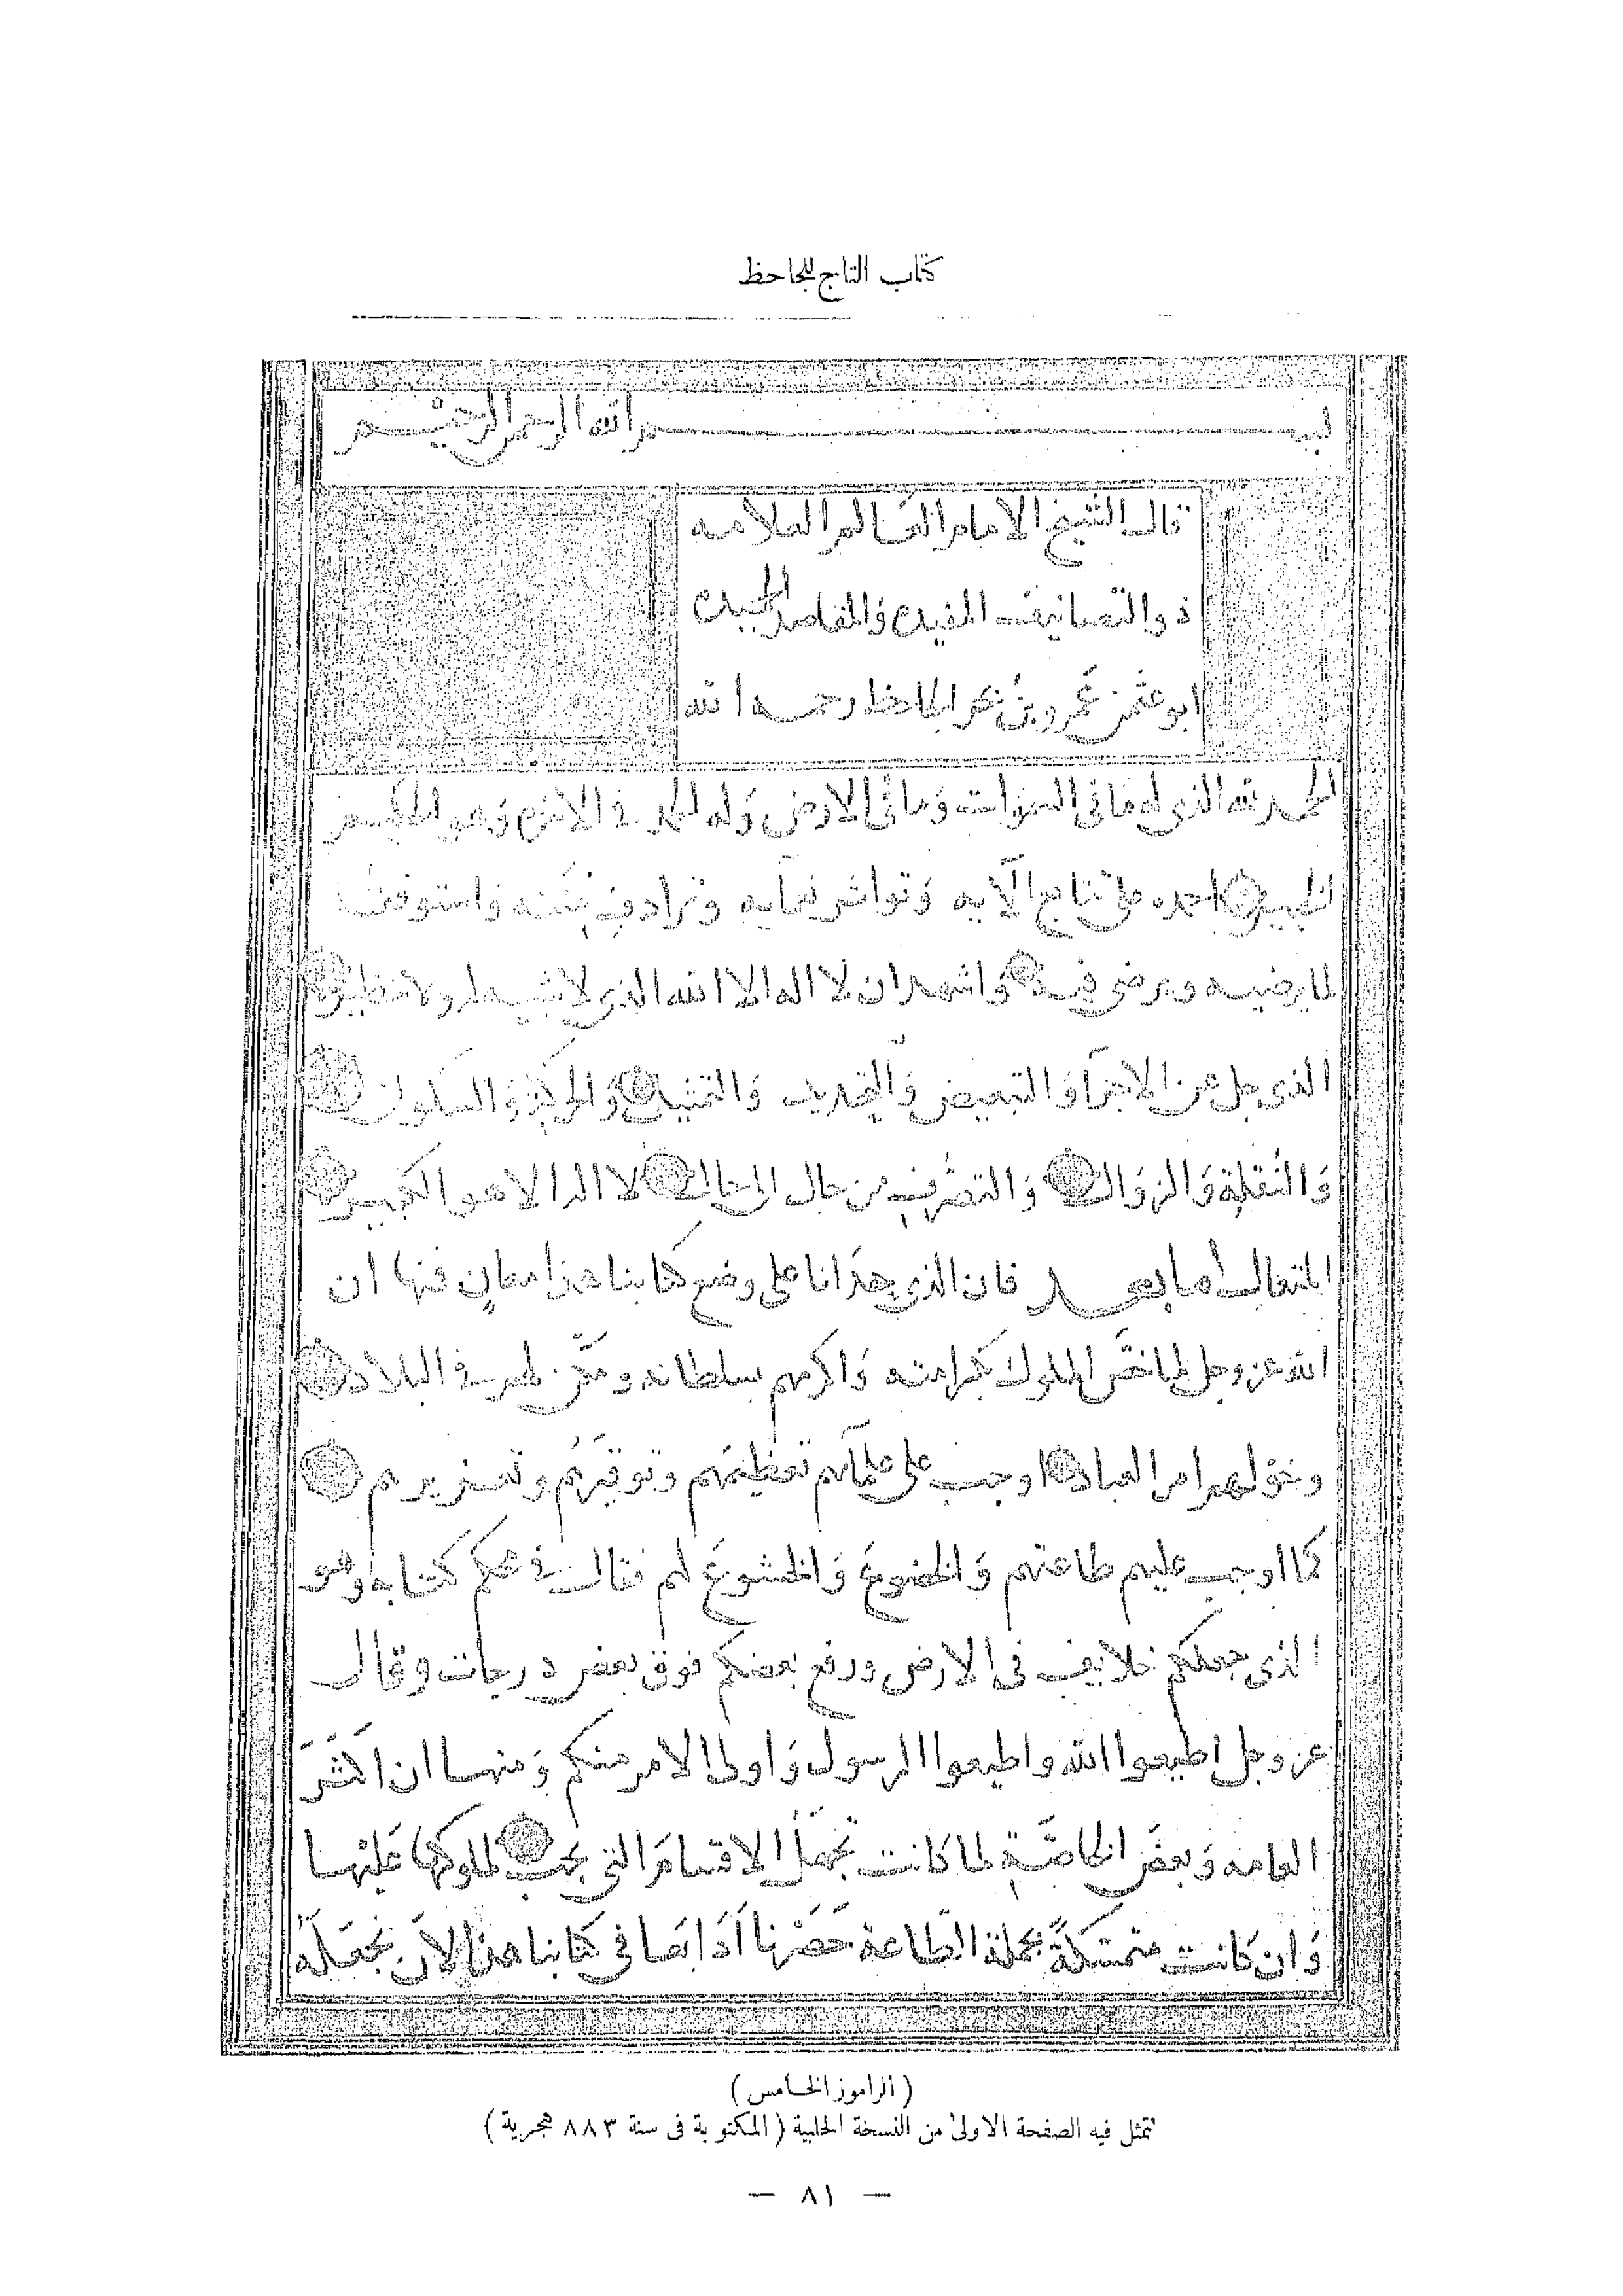 كتاب التاج للجاحظ
بسم الله الرحمن الرحيم
قال الشيخ الامام العالم العلامه
ذو التصانيف المفيده وَالمقاصد الحميده
ابو عثمن عَمرو بنُ بحر الجاحظ رحمه الله
الحمد لله الذى له مَا فى السموات وَمَا فى الارض وَله الحمد فى الاخره وَهو الحكيم
الخبير احمده على تتابع الآيه وَتواتر نعمآيه وترادف مننه وَاستوفقه
لما يرضيه ويرضى فيه وَاشهد ان لا اله الا الله الذى لا شبيه له ولا نظير
الذى جل عن الاجزآ وَالتبعيض وَالتحديد وَالتمثيل وَالحركة وَالسكون
وَالنُقلة وَالزوَال وَالتصَرُف من حال الى حال لا اله الا هو الكبير
المتعال اما بعد فان الذى حدَانا على وضع كتابنا هذا معانٍ فمنها ان
الله عز وجل لما خصّ الملوك بكرامته وَاكرمهم بسلطانه ومكّن لهم فى البلاد
وخوّلهم امر العباد اوجب على علمآئهم تعظيمَهم وتوقيرَهُم وتعزيرهم
كما اوجب عليهم طاعتهم وَالخضوعَ وَالخشوعَ لهم فقال فى محكم كتابه وهو
الذى جعلكم خلايف فى الارض ورفع بعضكم فوق بعض درجات وقال
عز وجل اطيعوا الله واطيعوا الرسول وَاولى الامر منكم وَمنها ان اكثرَ
العامه وَبعضَ الخاصّة لما كانت تجهَلُ الاقسامَ التى يجب لملوكها عَليْها
وَان كانت متمسّكةً بجملة الطّاعة حَصَرْنا آدَابَها فى كتابنا هذا لان نجعَلَهُ
(الراموز الخامس)
تتمثل فيه الصفحة الاولىٰ من النسخة الحلبية (المكتوبة فى سنة ٨٨٣ هجرية)
— ٨١ —